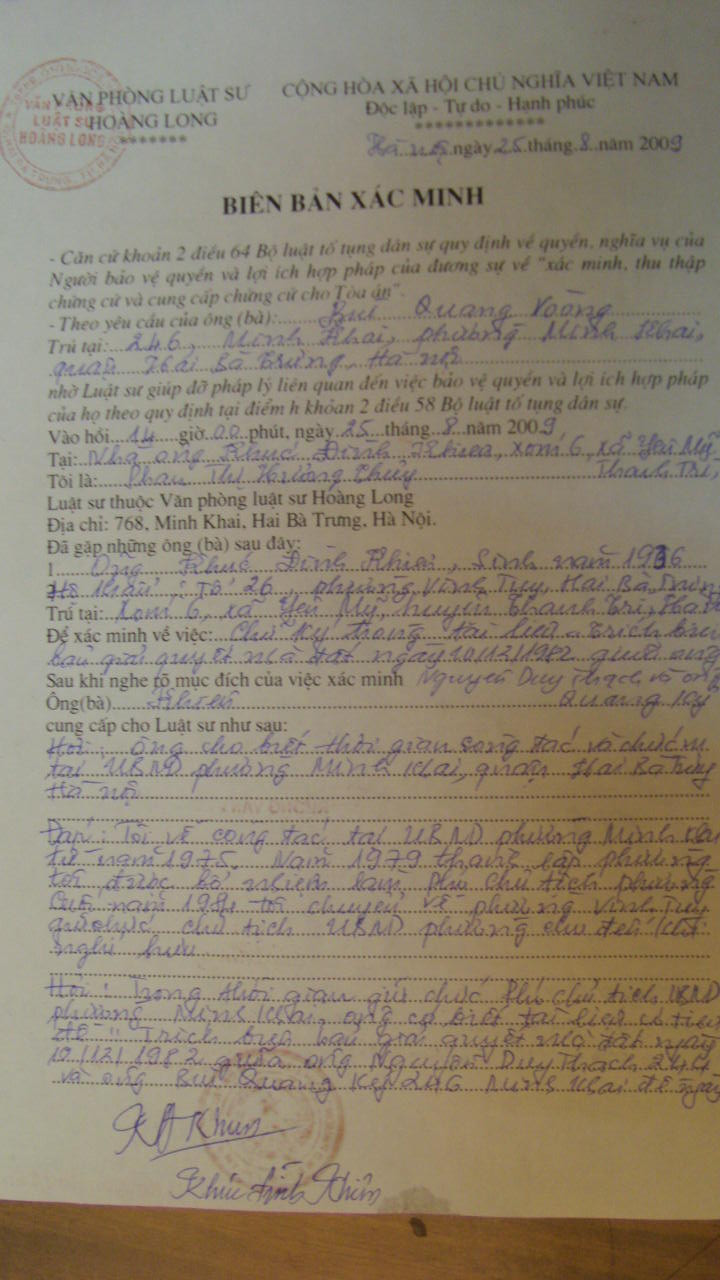 VĂN PHÒNG LUẬT SƯ
HOÀNG LONG
*******
VĂN PHÒNG
LUẬT SƯ
HOÀNG LONG
CỘNG HÒA XÃ HỘI CHỦ NGHĨA VIỆT NAM
Độc lập - Tự do - Hạnh phúc
*************
Hà Nội ngày 25 tháng 8 năm 2009
BIÊN BẢN XÁC MINH
- Căn cứ khoản 2 điều 64 Bộ luật tố tụng dân sự quy định về quyền, nghĩa vụ của
Người bảo vệ quyền và lợi ích hợp pháp của đương sự về "xác minh, thu thập
chứng cứ và cung cấp chứng cứ cho Tòa án".
- Theo yêu cầu của ông (bà): Bùi Quang
Trú tại: 246, Minh Khai, phường Minh Khai,
quận Hai Bà Trưng, Hà Nội
nhờ Luật sư giúp đỡ pháp lý liên quan đến việc bảo vệ quyền và lợi ích hợp pháp
của họ theo quy định tại điểm h khỏan 2 điều 58 Bộ luật tố tụng dân sự.
Vào hồi 14 giờ 00 phút, ngày 25 tháng 8 năm 2009
Tại: Nhà ông Khúc Đình Khiên, xóm 6, xã Yên Mỹ
Tôi là: Phan Thị Hương Thủy Thanh Trì,
Luật sư thuộc Văn phòng luật sư Hoàng Long
Địa chỉ: 768, Minh Khai, Hai Bà Trưng, Hà Nội.
Đã gặp những ông (bà) sau đây:
1 Ông Khúc Đình Khiên, Sinh năm 1936
Hộ khẩu: Tổ 26, phường Vĩnh Tuy, Hai Bà Trưng
Trú tại: Xóm 6, xã Yên Mỹ, huyện Thanh Trì, Hà Nội
Để xác minh về việc: Chữ ký trong tài liệu "Trích biên
bản giải quyết nhà đất ngày 10/12/1982 giữa ông
Sau khi nghe rõ mục đích của việc xác minh Nguyễn Duy Thạch và ông
Ông(bà) Khiên Quang Kỳ
cung cấp cho Luật sư như sau:
Hỏi: Ông cho biết thời gian công tác và chức vụ
tại UBND phường Minh Khai, quận Hai Bà Trưng
Hà Nội
Đáp: Tôi về công tác tại UBND phường Minh Khai
từ năm 1975. Năm 1979 thành lập phường
tôi được bổ nhiệm làm phó chủ tịch phường
Cuối năm tôi chuyển về phường Vĩnh Tuy
giữ chức chủ tịch UBND phường cho đến khi
nghỉ hưu.
Hỏi: Trong thời gian giữ chức Phó chủ tịch UBND
phường Minh Khai, ông có biết tài liệu có tiêu
đề "Trích biên bản giải quyết nhà đất ngày
10/12/1982 giữa ông Nguyễn Duy Thạch 244
và ông Bùi Quang Kỳ 246 Minh Khai đề ngày
Khiên
Khúc Đình Khiên